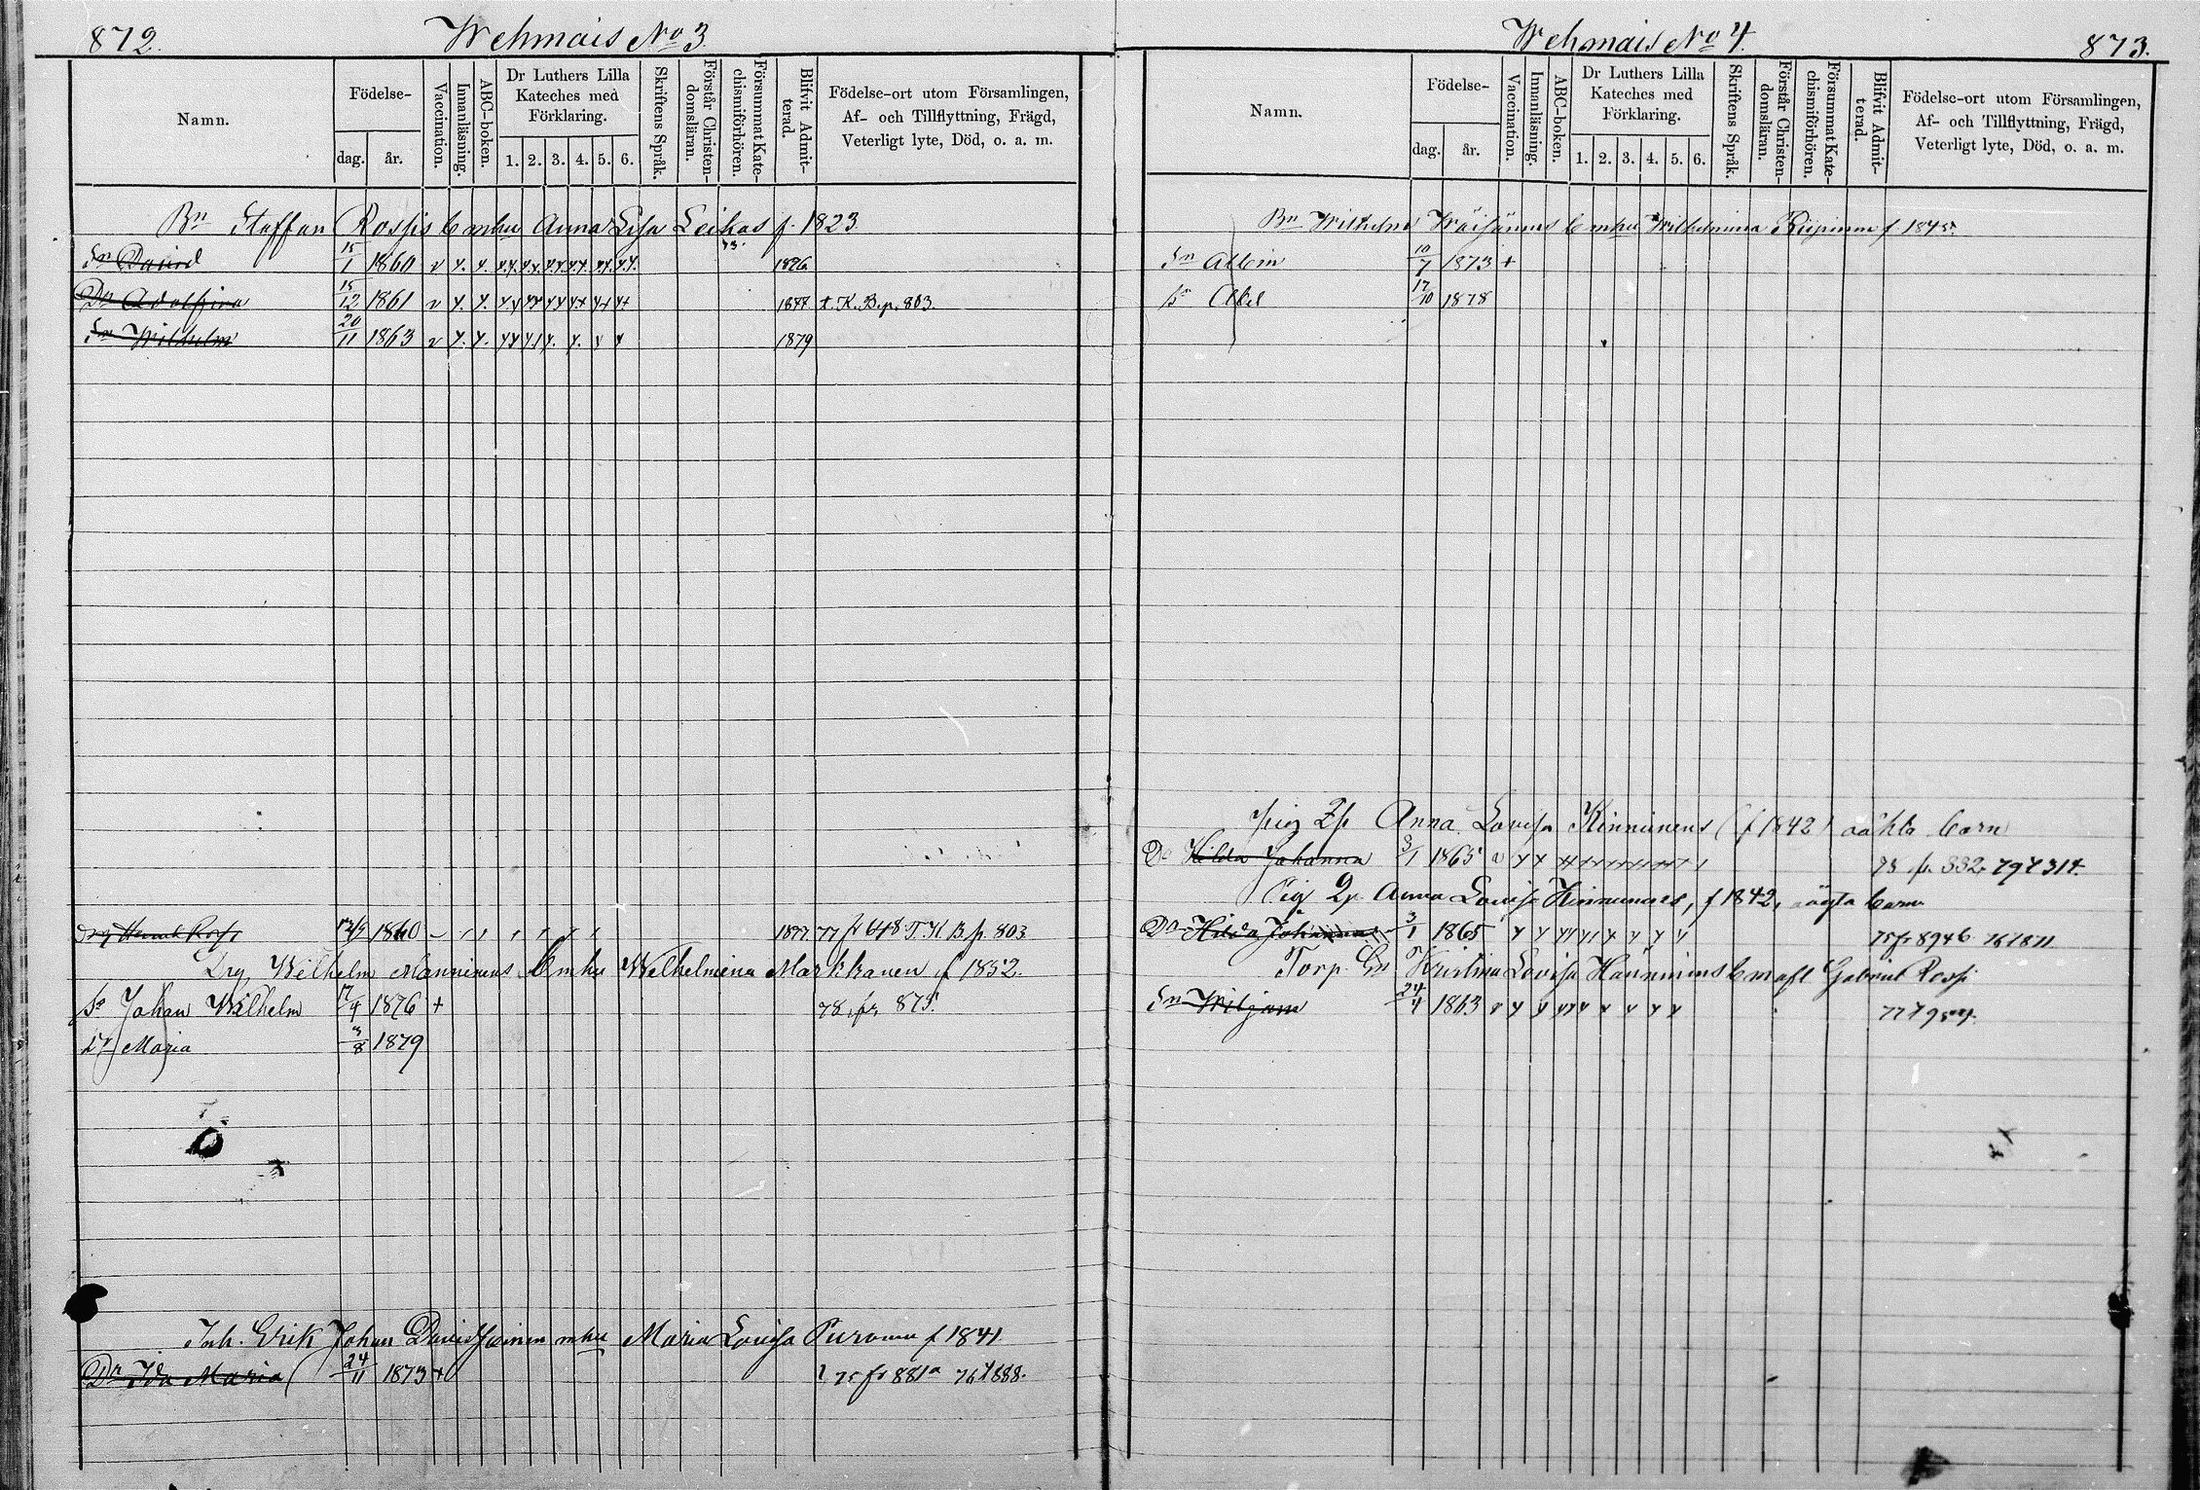 872.
Wehmais No 3.
Namn.
Födelse-
dag.
år.
Vaccination.
Innanläsning.
ABC-boken.
Dr Luthers Lilla
Kateches med
Förklaring.
1. 2. 3. 4. 5. 6.
Skriftens Språk.
Förstår Christen-
domsläran.
Försummat Kate-
chismiförhören.
Blifvit Admit-
terad.
Födelse-ort utom Församlingen,
Af- och Tillflyttning, Frägd,
Veterligt lyte, Död, o. a. m.
Bn Staffan Rossis b mhu Anna Lisa Leikas f. 1823
Sn David 15/1 1860 v 1876
Dr Adolfina 15/12 1861 v 1877 t. K. B. p. 803
Sn Wilhelm 20/11 1863 v 1879
Drg Henrik Rossi 1860 1877 77 fr T. K B p. 803
Drg Wilhelm Manninens b mhu Wilhelmina Markkanen f 1852.
Sn Johan Wilhelm 17/4 1876 + 78 fr. 875.
Dr Maria 3/8 1879
Inh. Erik Johan Davidsainen mhu Maria Lovisa Puranen f 1841
Dr Ida Maria 24/11 1873 + 75 fr 881a 76 t 888.
Wehmais No 4.
873.
Namn.
Födelse-
dag.
år.
Vaccination.
Innanläsning.
ABC-boken.
Dr Luthers Lilla
Kateches med
Förklaring.
1. 2. 3. 4. 5. 6.
Skriftens Språk.
Förstår Christen-
domsläran.
Försummat Kate-
chismiförhören.
Blifvit Admit-
terad.
Födelse-ort utom Församlingen,
Af- och Tillflyttning, Frägd,
Veterligt lyte, Död, o. a. m.
Bn Wilhelm Wäisänens b mhu Wilhelmina f 1845.
Sn Albin 10/7 1873 +
Sn Abel 17/10 1878
pig Anna Lovisa Kinnunens (f 1842) oäkta barn
Dr Hilda Johanna 3/1 1865 v 75 fr. 332. 79 t 314.
Pig Anna Lovisa Kinnunens, f 1842, oägta barn
Dr Hilda Johanna 3/1 1865 75 fr 894b 76 t 871
Torp. En Kristina Lovisa Hänninens b m afl Gabriel Rossi
Sn Wiljam 24/4 1863 v